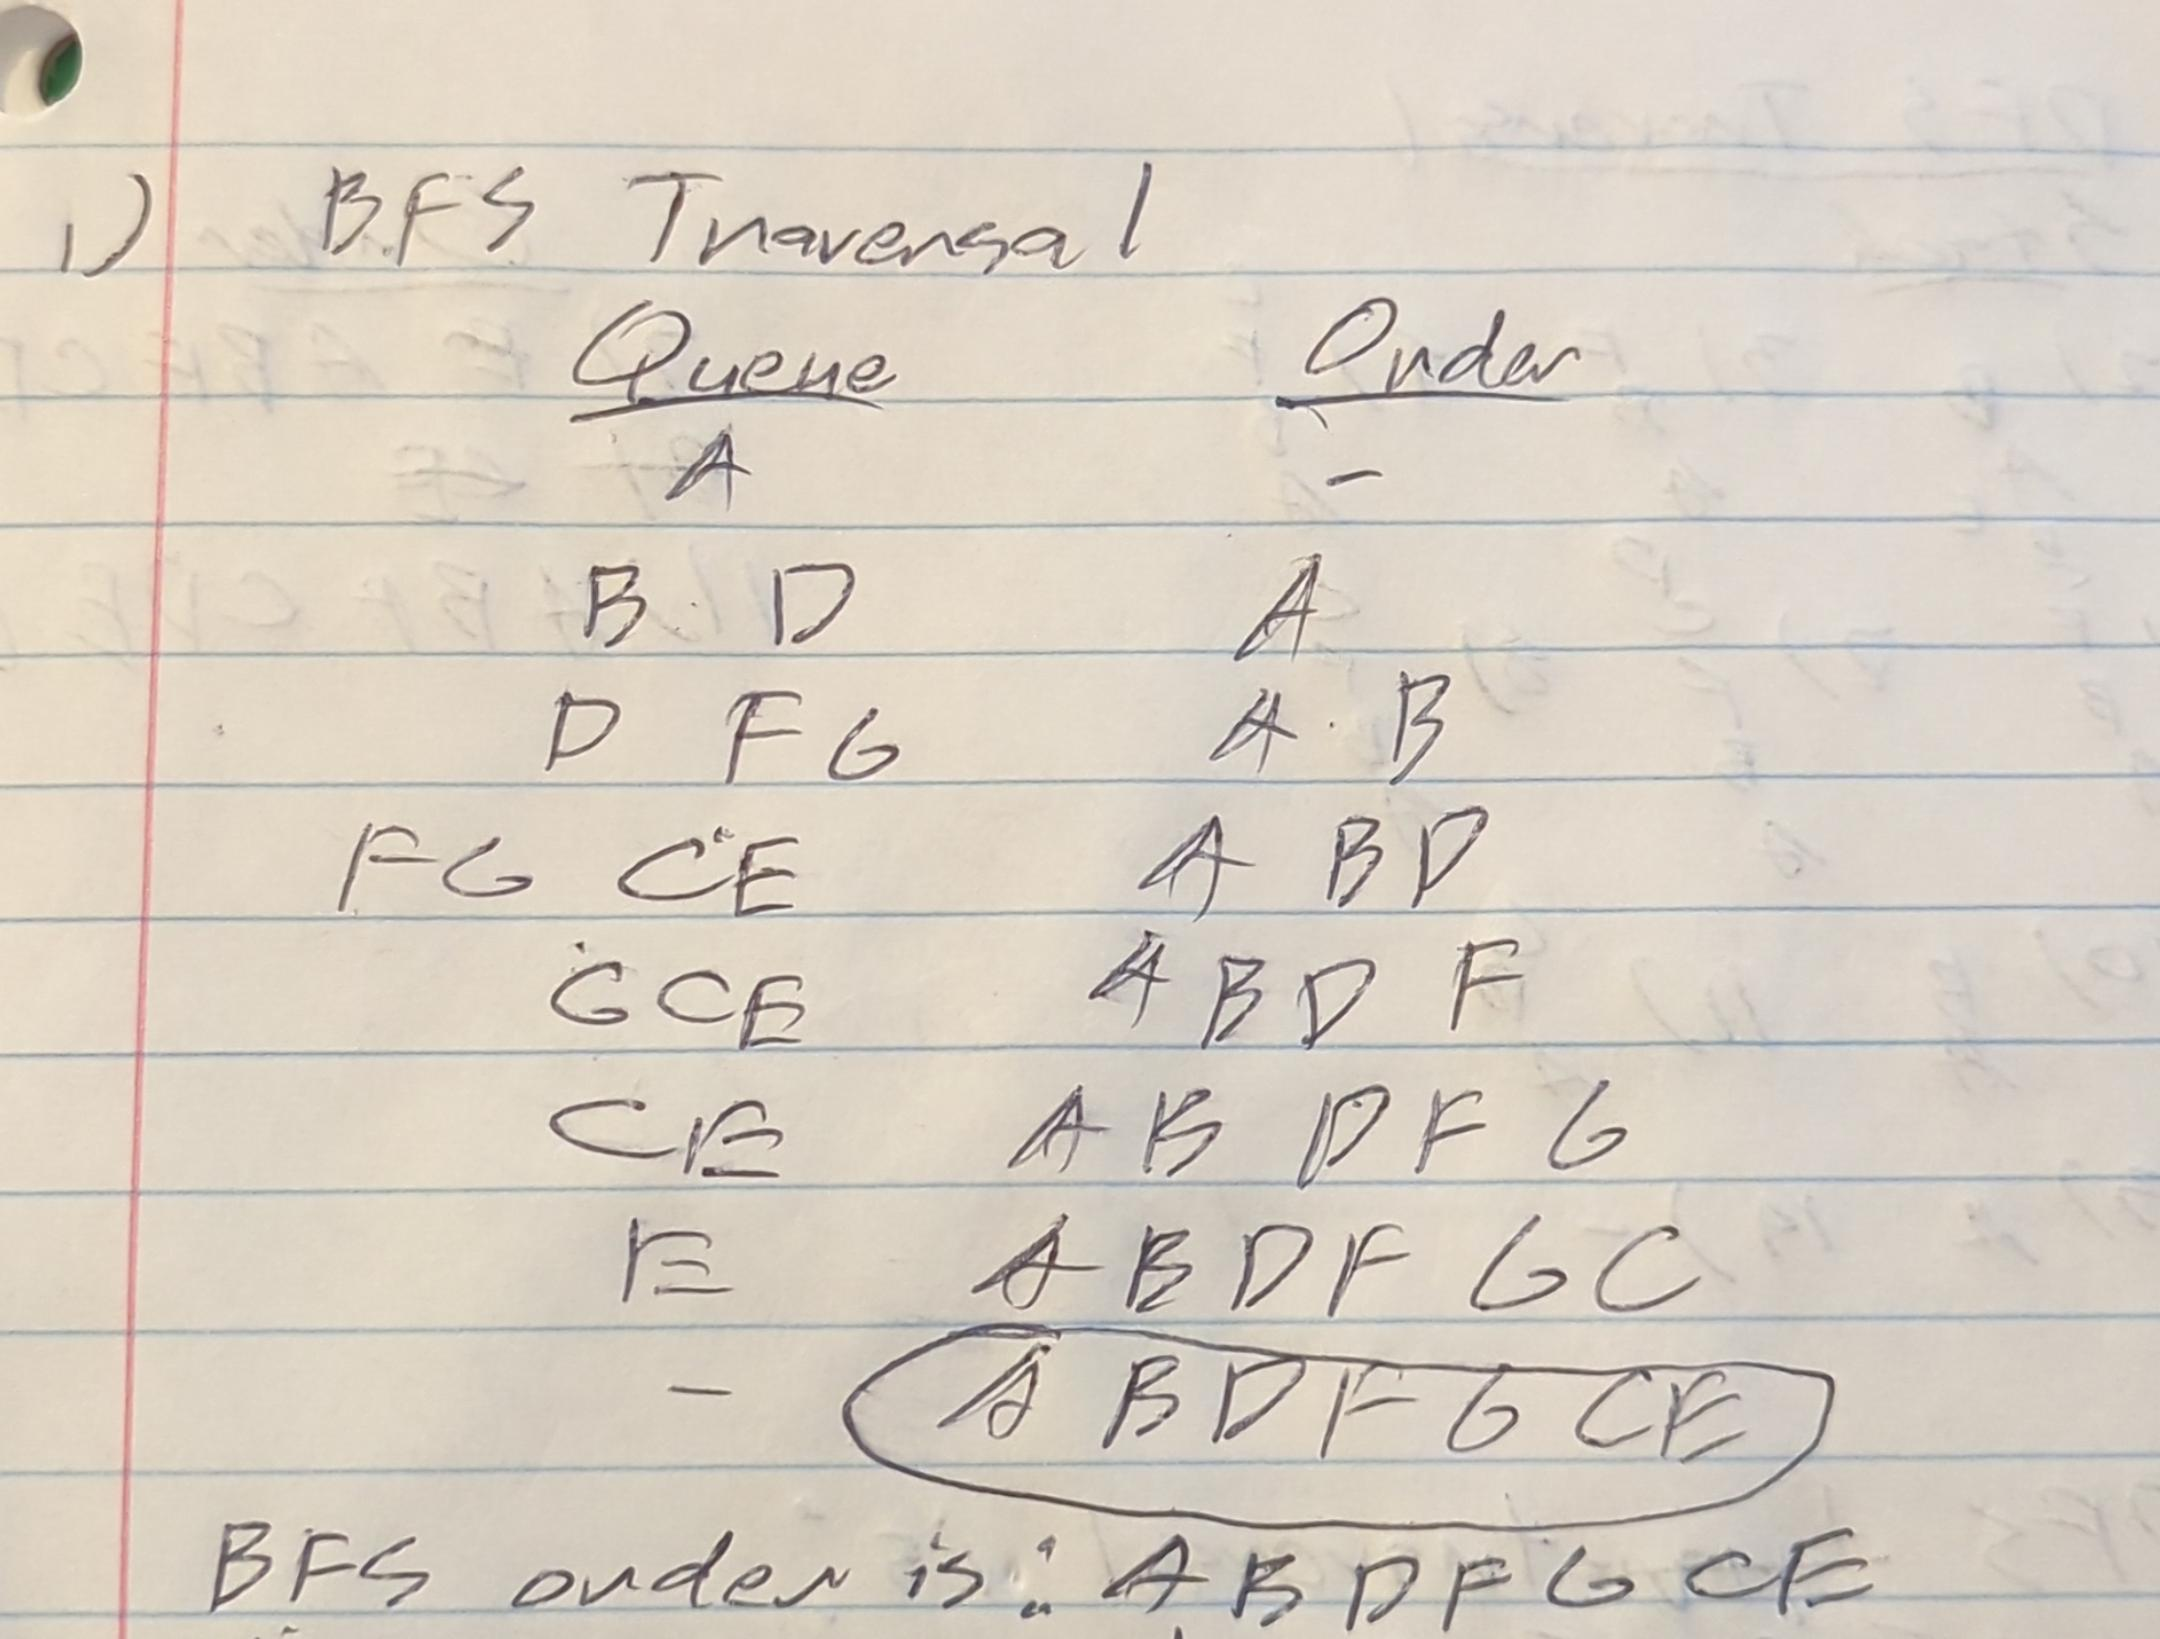 1.) BFS Traversal
Queue Order
A -
B D A
D F G A B
F G C E A B D
G C E A B D F
C E A B D F G
E A B D F G C
- A B D F G C E
BFS order is: A B D F G C E